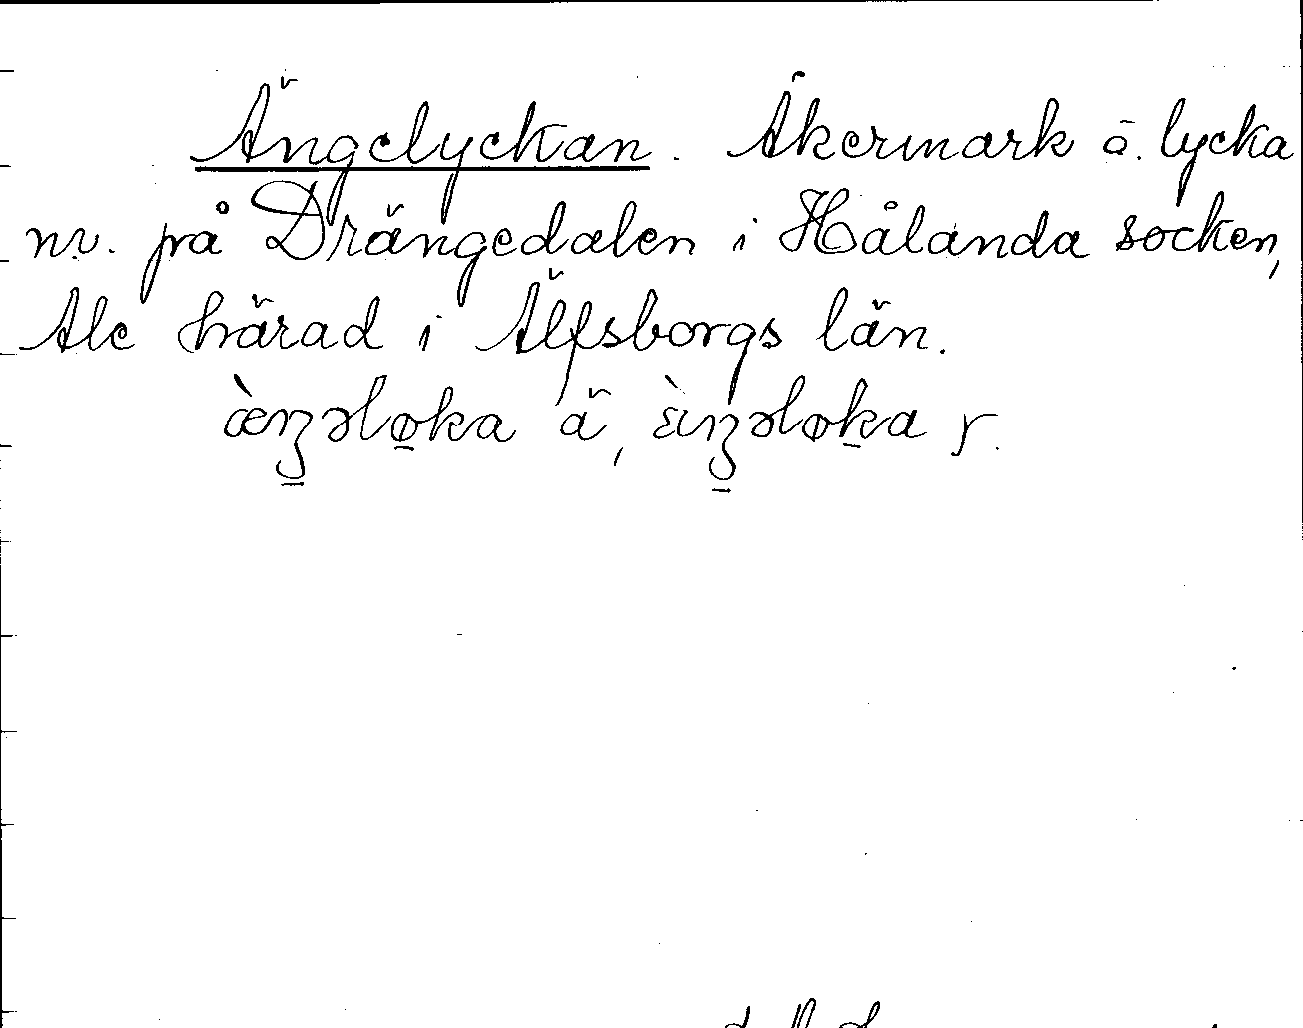 Ängelyckan. Åkermark o. lycka
nv. på Drängedalen i Hålanda socken,
Ale härad i Älfsborgs län.
æ̀ŋəlo̲ka ä, ɛ̀ŋəlo̲ka r.